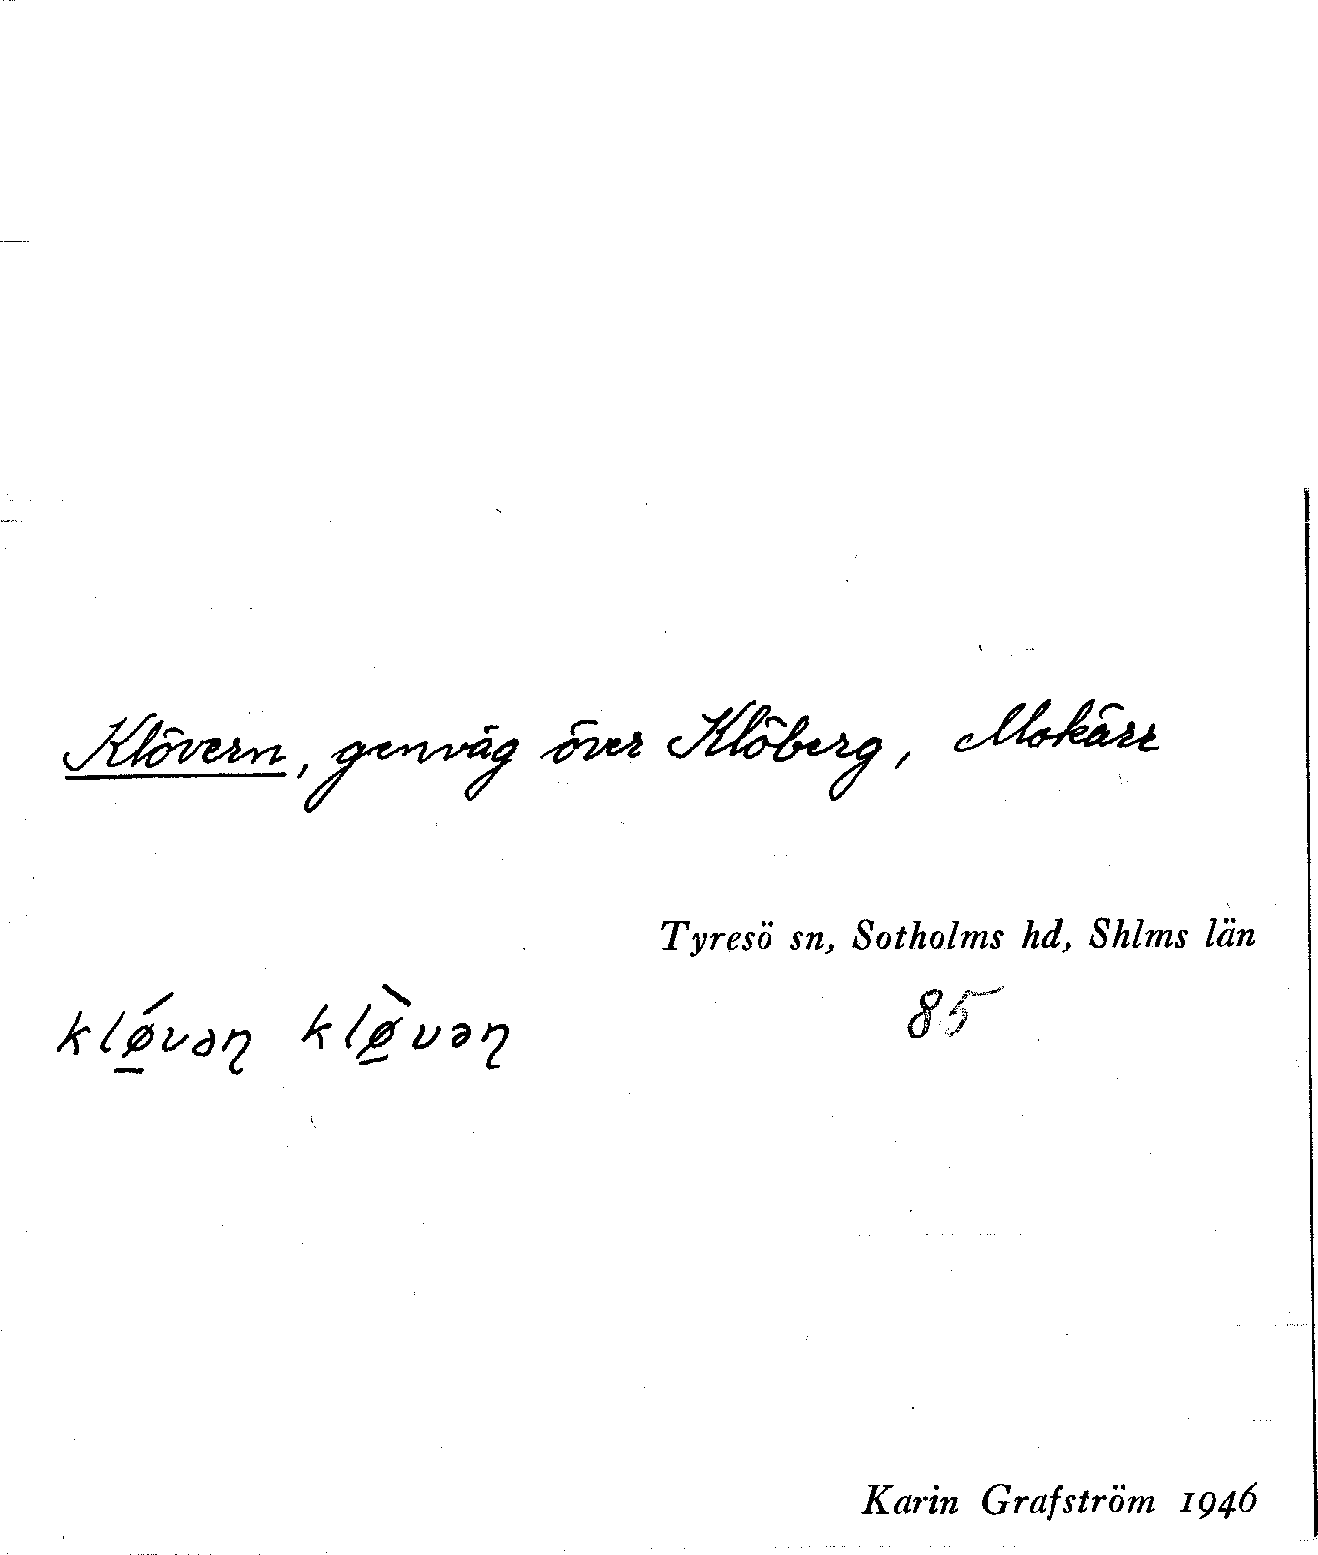 Klövern, genväg över Klöberg, Mokärr
Tyresö sn, Sotholms hd, Shlms län
klǿ̱vəɳ klø̱̀vəɳ
85
Karin Grafström 1946